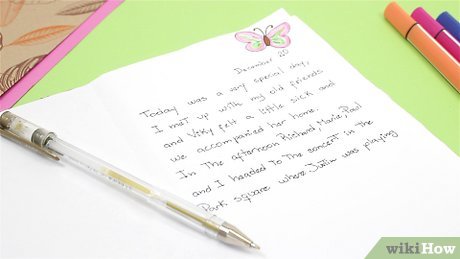 December 20
Today was a very special day,
I met up with my old friends
and Vicky felt a little sick and
we accompanied her home.
In the afternoon Richard, Marie, Paul
and I headed to the concert in the
Park square where Justin was playing
wikiHow